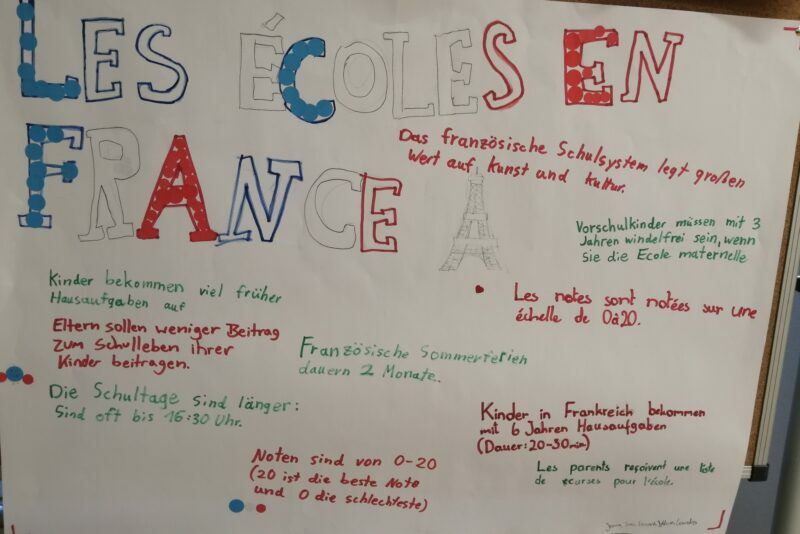 LES ÉCOLES EN
FRANCE
Das französische Schulsystem legt großen
Wert auf Kunst und Kultur.
Vorschulkinder müssen mit 3
Jahren windelfrei sein, wenn
Sie die Ecole maternelle
Kinder bekommen viel früher
Hausaufgaben auf
Les notes sont notées sur une
échelle de 0 à 20.
Eltern sollen weniger Beitrag
zum Schulleben ihrer
Kinder beitragen.
Französische Sommerferien
dauern 2 Monate.
Die Schultage sind länger:
Sind oft bis 16:30 Uhr.
Kinder in Frankreich bekommen
mit 6 Jahren Hausaufgaben
(Dauer: 20-30 min)
Noten sind von 0-20
(20 ist die beste Note
und 0 die schlechteste)
Les parents reçoivent une liste
de courses pour l'école.